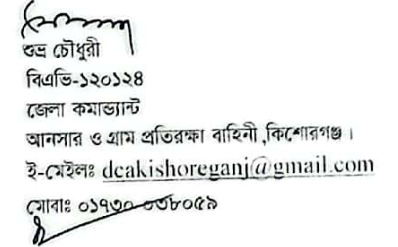 শুভ্র চৌধুরী
বিএভি-১২০১২৪
জেলা কমান্ড্যান্ট
আনসার ও গ্রাম প্রতিরক্ষা বাহিনী ,কিশোরগঞ্জ ।
ই-মেইলঃ dcakishoreganj@gmail.com
মোবাঃ ০১৭৩০-০৩৮০৫৯